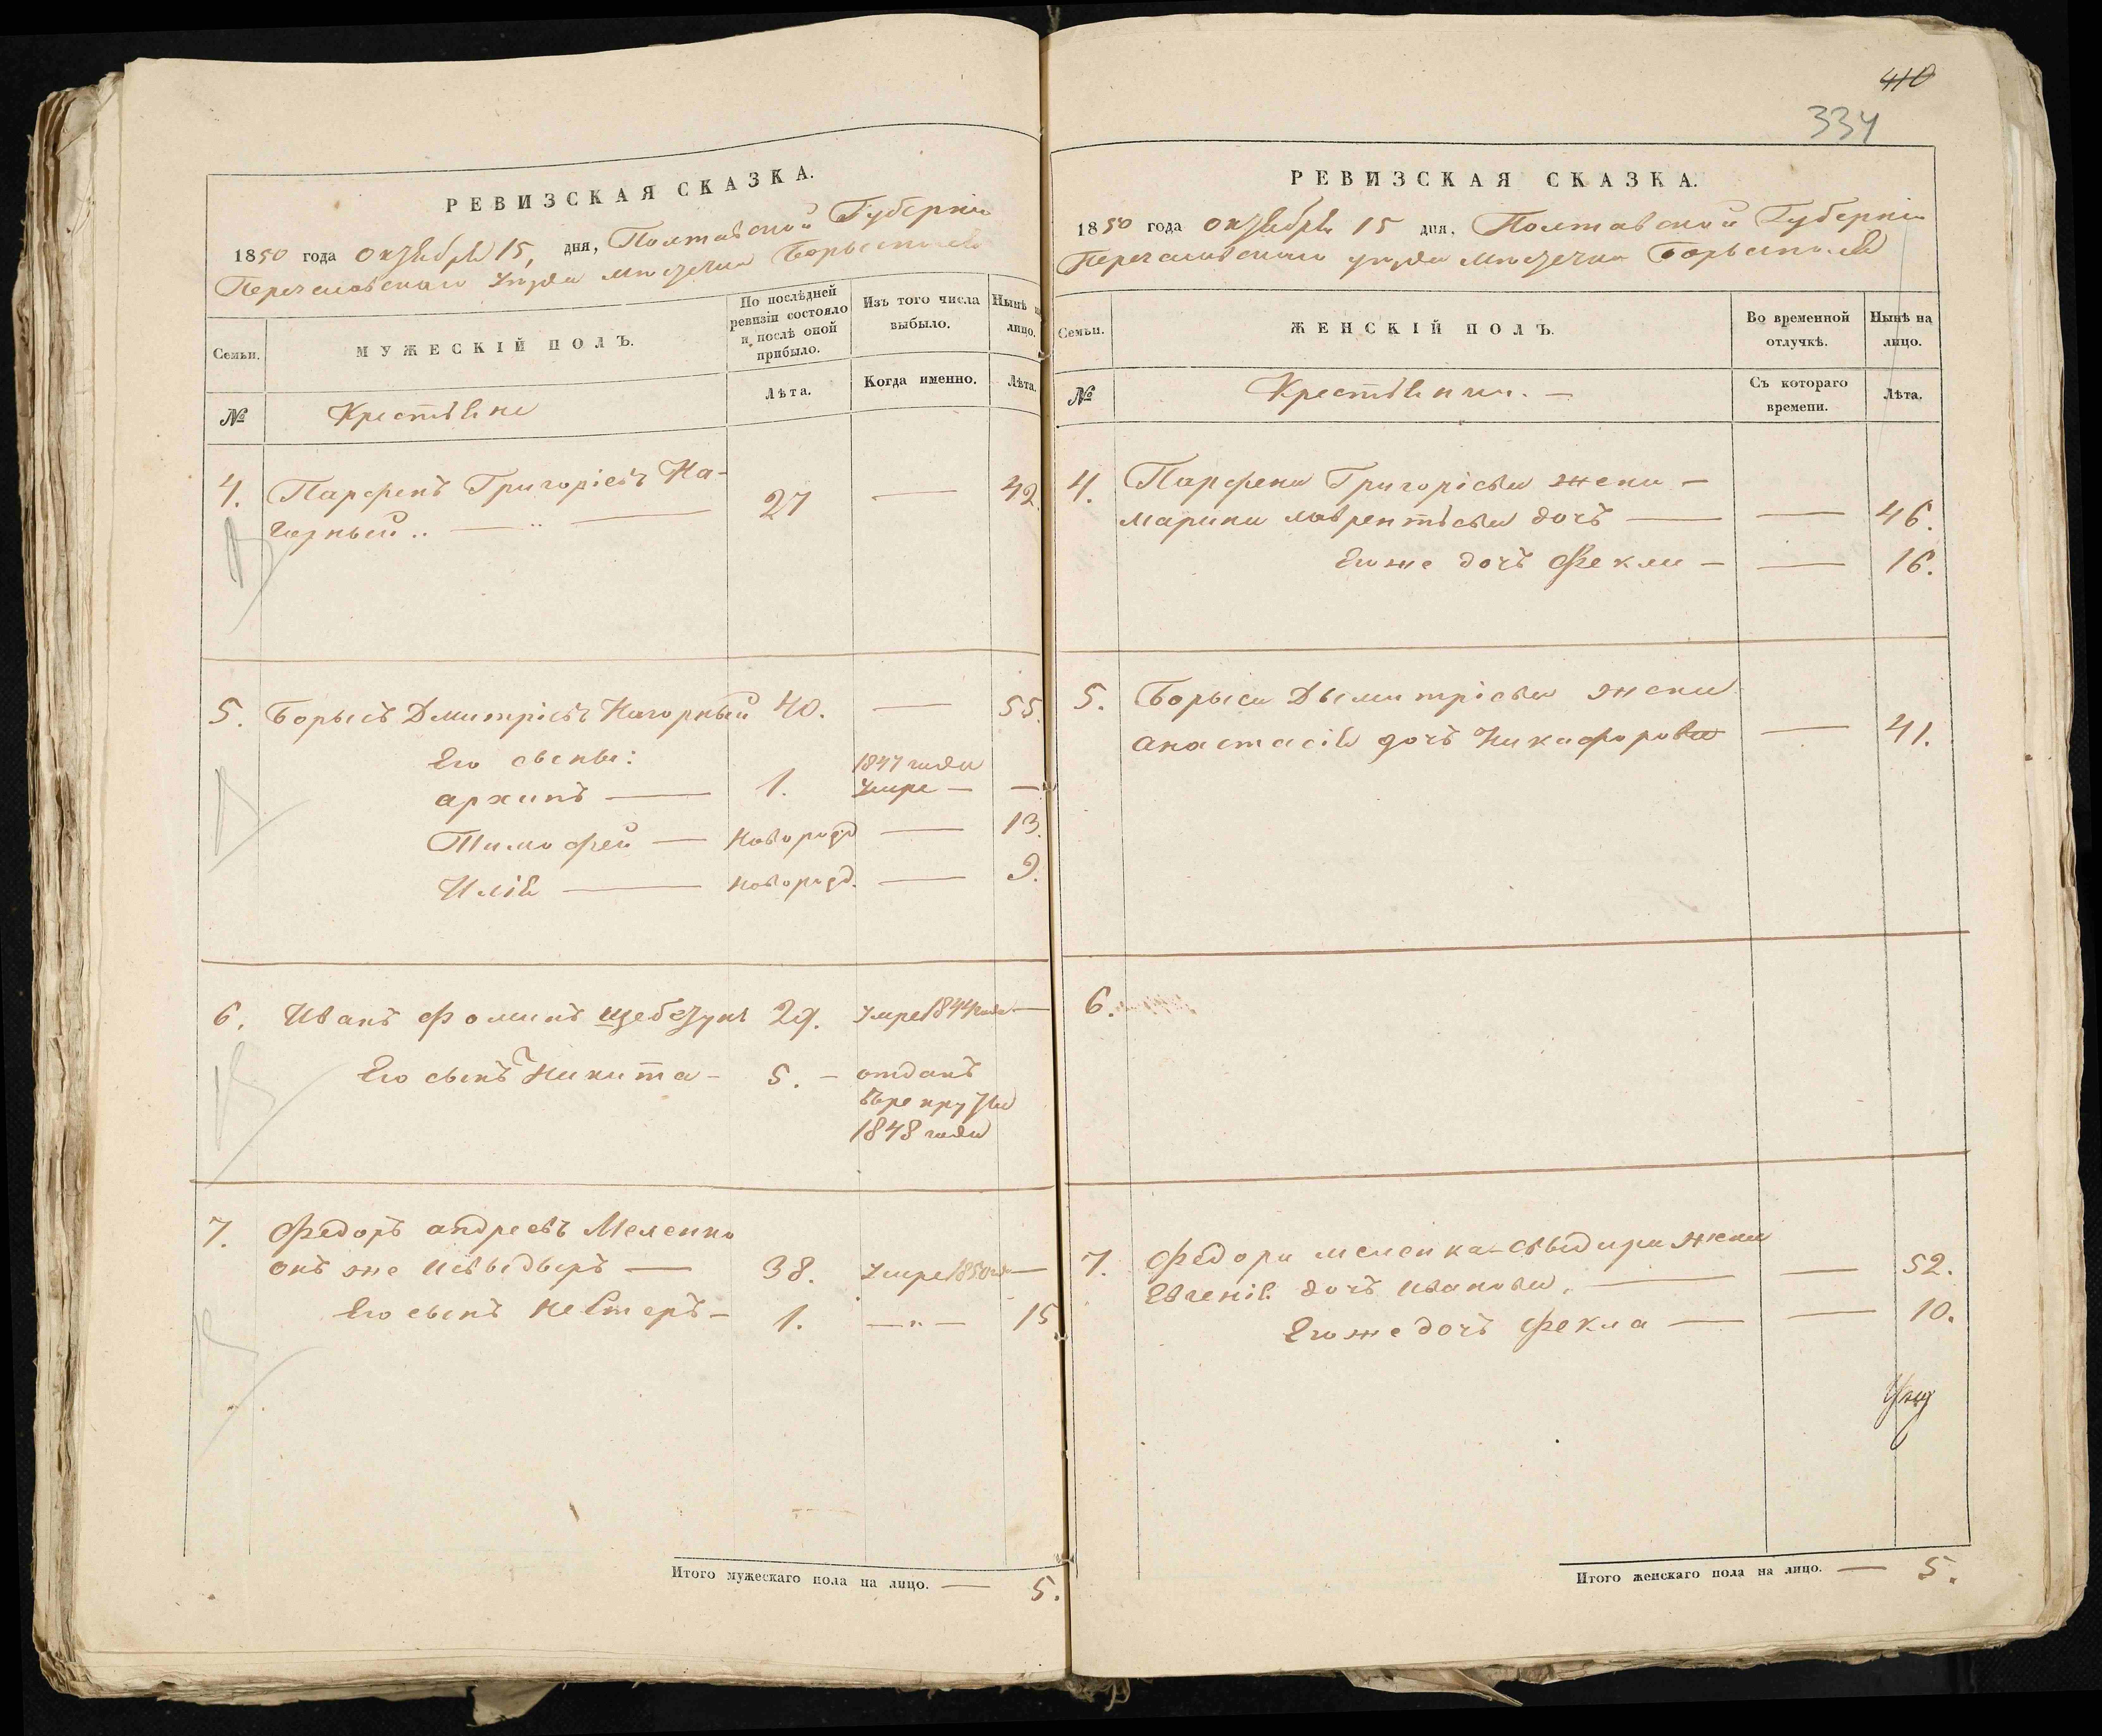 РЕВИЗСКАЯ СКАЗКА.
1850 года октября 15, дня, Полтавской Губерніи
Переяславского уезда местечка Борысполя
Семьи.
МУЖЕСКІЙ ПОЛЪ.
По послѣдней ревизіи состояло и послѣ оной прибыло.
Изъ того числа выбыло.
Нынѣ на лицо.
№
Крестьяне
Лѣта.
Когда именно.
Лѣта.
4. Парфенъ Григоріевъ На-
горный .. — 27 — 42.
5. Борысъ Дмитріевъ Нагорный 40. — 55.
Его сыны:
архипъ — 1. 1847 года Умре — —
Тимофей — новорожд — 13.
Илія — новорожд. — 9.
6. Иванъ Фоминъ 29. Умре 1844 года —
Его сынъ Никита — 5. — отданъ
въ рекруты
1848 года
7. Федоръ андреевъ Меленко
онъ же — 38. Умре 1850 года —
Его сынъ Нестеръ — 1. — „ — 15
Итого мужескаго пола на лицо. — 5.
410
334
РЕВИЗСКАЯ СКАЗКА.
1850 года октября 15 дня, Полтавской Губерніи
Переяславского уезда местечка Борысполя
Семьи.
ЖЕНСКІЙ ПОЛЪ.
Во временной отлучкѣ.
Нынѣ на лицо.
№
Крестьянки. —
Съ котораго времени.
Лѣта.
4. Парфена Григоріева жена —
Марина лаврентьева дочъ — — 46.
Его же дочъ Фекла — — 16.
5. Борыса Дымитріева жена
анастасія дочъ Никифорова — 41.
6.
7. Федора меленка жена
Евгенія дочъ иванова. — — 52.
Его же дочъ Фекла — — 10.
Итого женскаго пола на лицо. — 5.